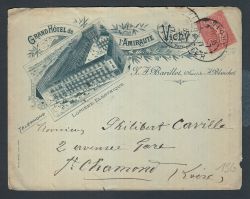 GRAND HÔTEL de
l'AMIRAUTÉ
VICHY
F. J. Barillot,
TÉLÉPHONE
LUMIÈRE ÉLECTRIQUE
Monsieur Philibert Caville
2 avenue Gare
St Chamond
(Loire)